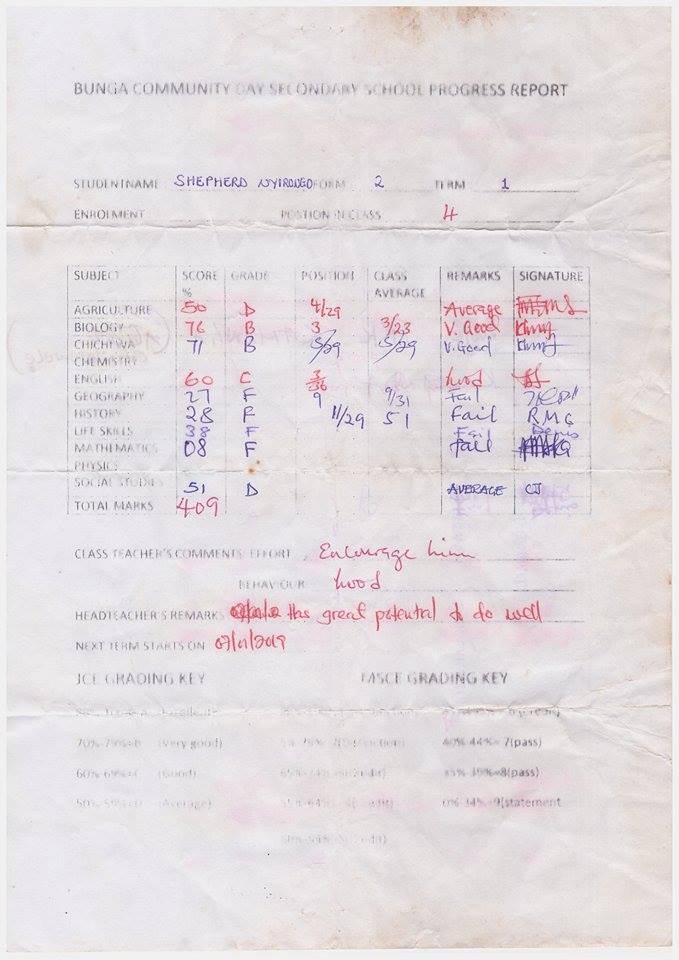 BUNGA COMMUNITY DAY SECONDARY SCHOOL PROGRESS REPORT
STUDENTNAME SHEPHERD NYIRONGO FORM 2 TERM 1
ENROLMENT POSITION IN CLASS 4
SUBJECT SCORE % GRADE POSITION CLASS AVERAGE REMARKS SIGNATURE
AGRICULTURE 50 D 4/29 Average
BIOLOGY 76 B 3 3/23 V. Good
CHICHEWA 71 B 5/29 5/29 V. Good
CHEMISTRY
ENGLISH 60 C Good
GEOGRAPHY 27 F 9 9/31 Fail
HISTORY 28 F 11/29 51 Fail RMG
LIFE SKILLS 38 F Fail
MATHEMATICS 08 F Fail
PHYSICS
SOCIAL STUDIES 51 D AVERAGE CJ
TOTAL MARKS 409
CLASS TEACHER'S COMMENTS: EFFORT Encourage him
BEHAVIOUR Good
HEADTEACHER'S REMARKS Has great potential to do well
NEXT TERM STARTS ON 07/01/2019
JCE GRADING KEY MSCE GRADING KEY
70%-79%=B (very good) 40%-44%=7(pass)
60%-69%=C (Good) 35%-39%=8(pass)
50%-59%=D (Average) 0%-34%=9(statement